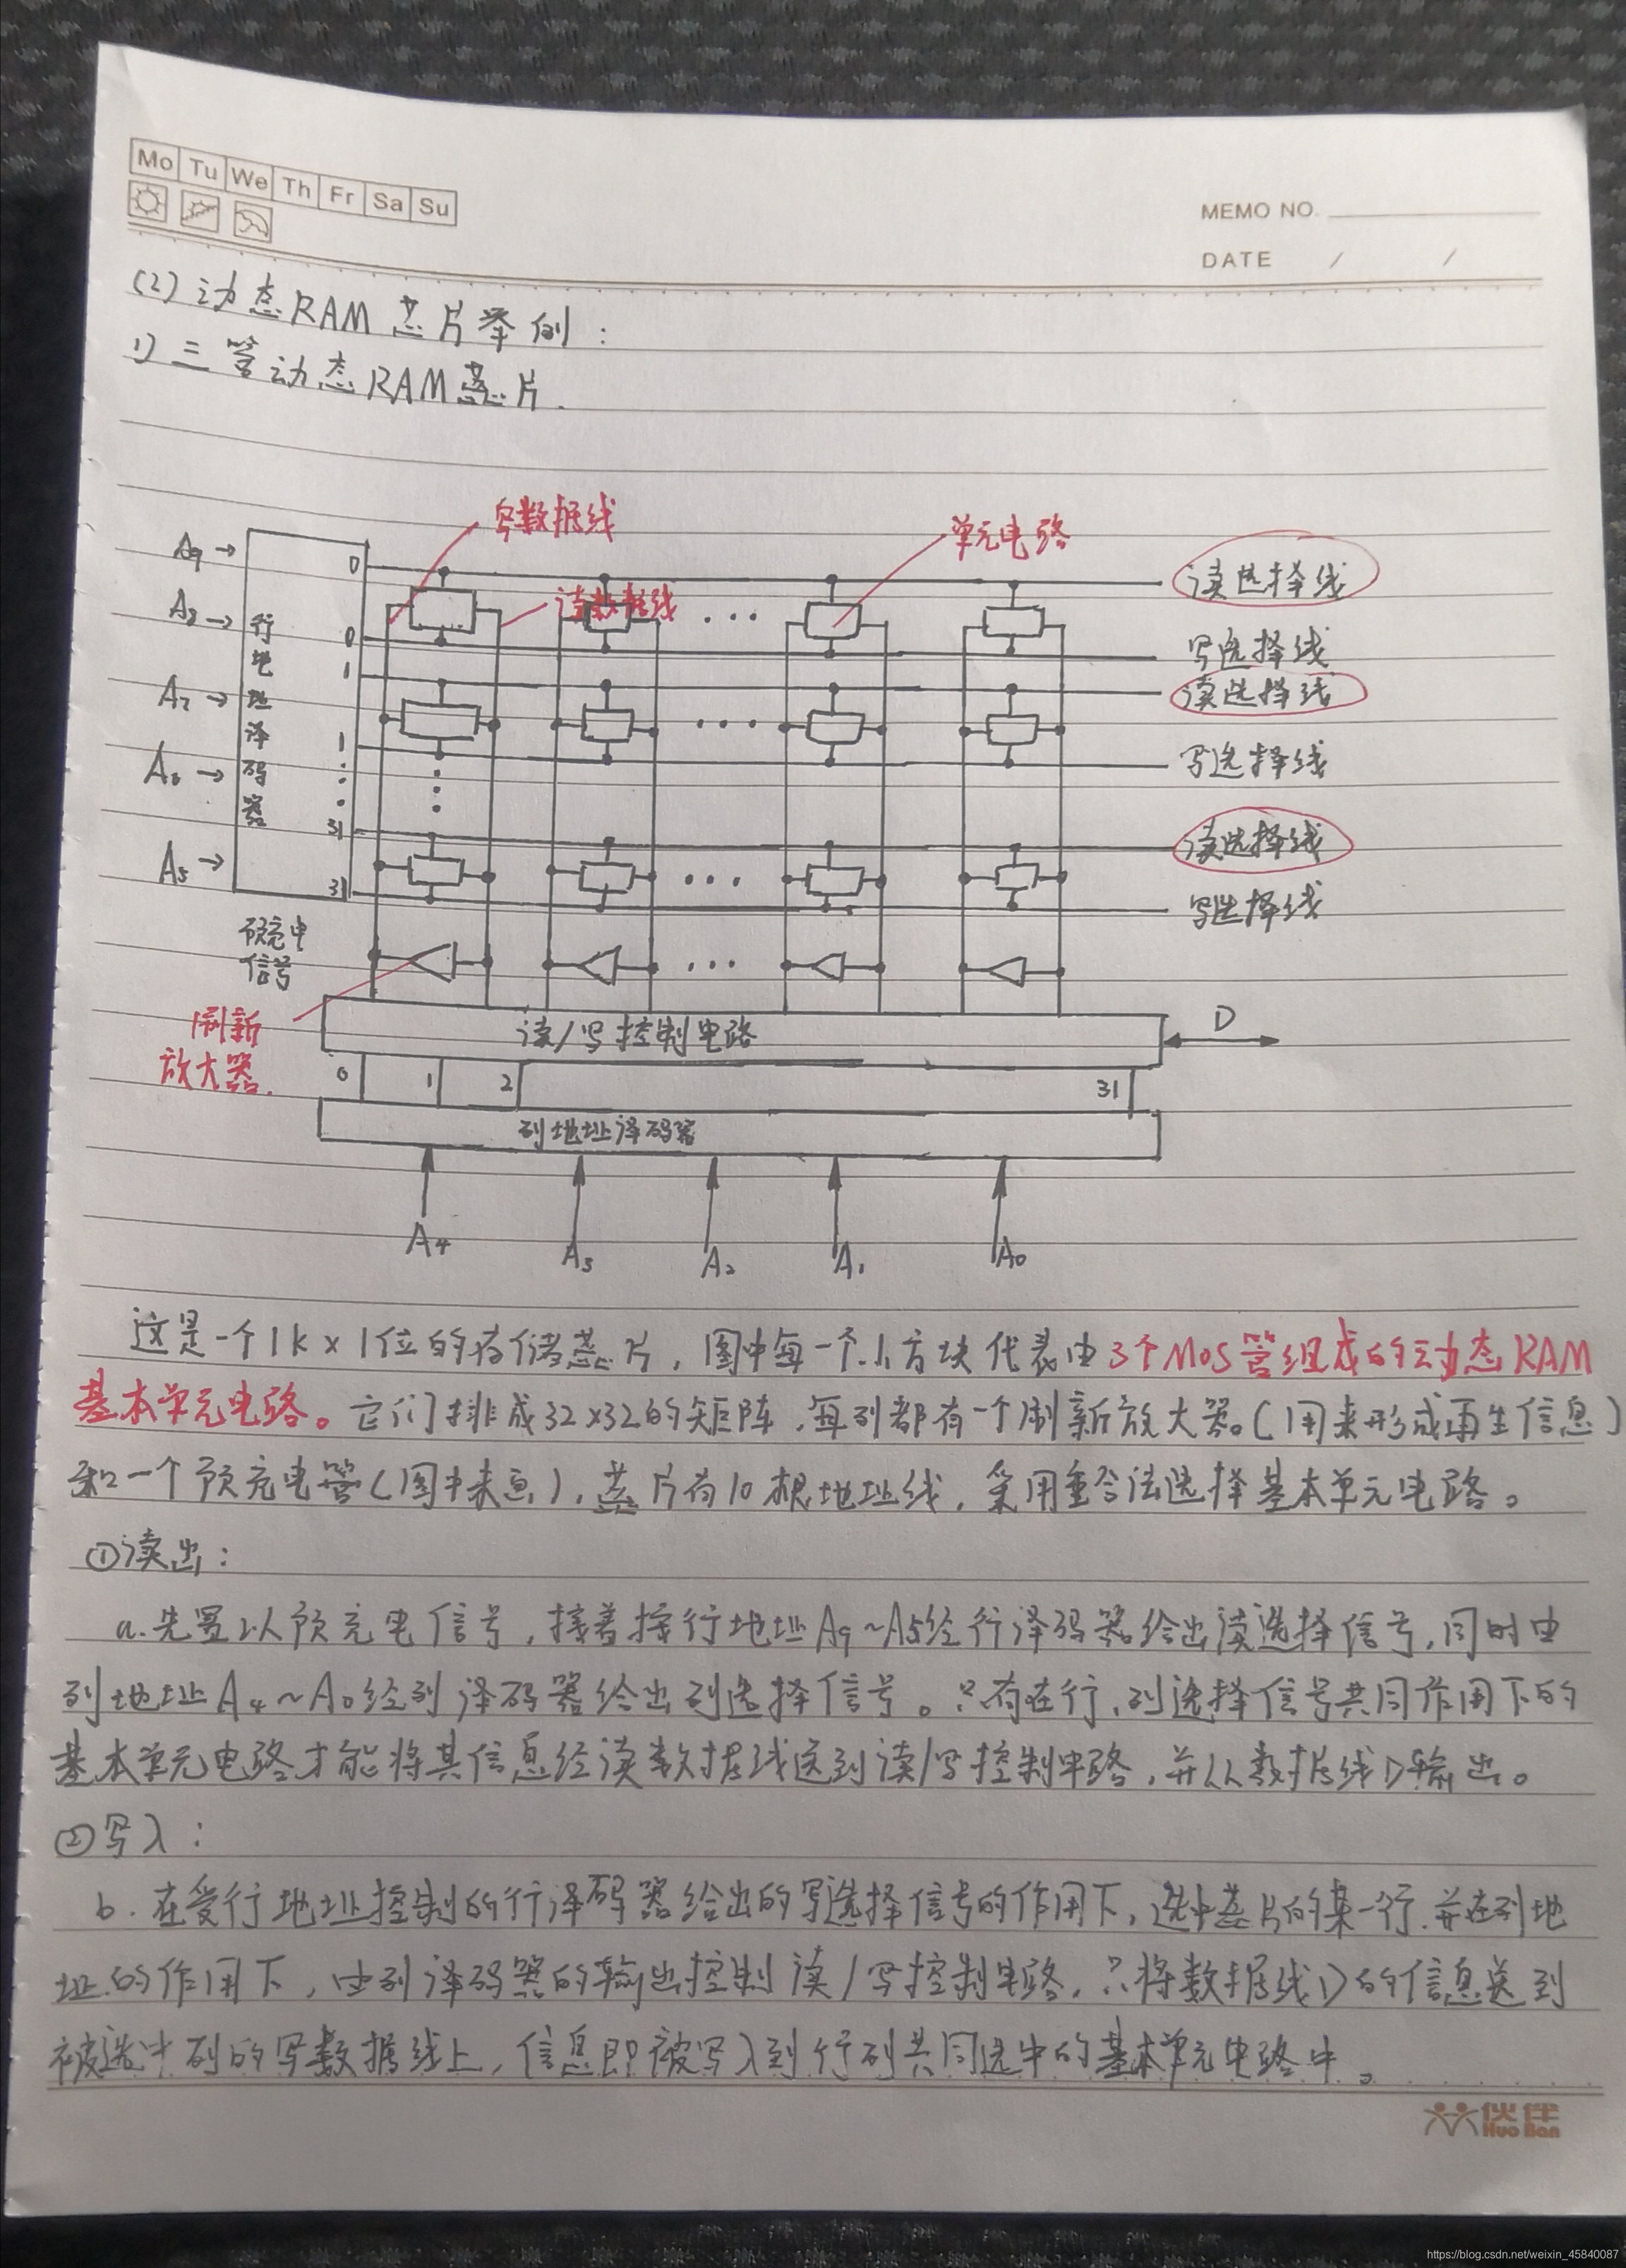 Mo Tu We Th Fr Sa Su
MEMO NO.
DATE / /
(2) 动态RAM芯片举例:
1) 三管动态RAM芯片.
写数据线
单元电路
读数据线
A9 →
A8 →
A7 →
A6 →
A5 →
行地址译码器
0
0
1
1
31
31
...
读选择线
写选择线
读选择线
写选择线
读选择线
写选择线
预充电
信号
刷新
放大器.
读/写控制电路
D
0 1 2 31
列地址译码器
A4 A3 A2 A1 A0
这是一个1k×1位的存储芯片, 图中每一个小方块代表由3个MOS管组成的动态RAM
基本单元电路。它们排成32×32的矩阵, 每列都有一个刷新放大器。(用来形成再生信息)
和一个预充电管(图中未画), 芯片有10根地址线, 采用重合法选择基本单元电路。
①读出:
a. 先置以预充电信号, 接着按行地址A9~A5经行译码器给出读选择信号, 同时由
列地址A4~A0经列译码器给出列选择信号。只有在行、列选择信号共同作用下的
基本单元电路才能将其信息经读数据线送到读/写控制电路, 并从数据线D输出。
②写入:
b. 在受行地址控制的行译码器给出的写选择信号的作用下, 选中芯片的某一行. 并在列地
址的作用下, 由列译码器的输出控制读/写控制电路, 只将数据线D的信息送到
被选中列的写数据线上, 信息即被写入到行列共同选中的基本单元电路中。
伙伴
Huo Ban
https://blog.csdn.net/weixin_45840087